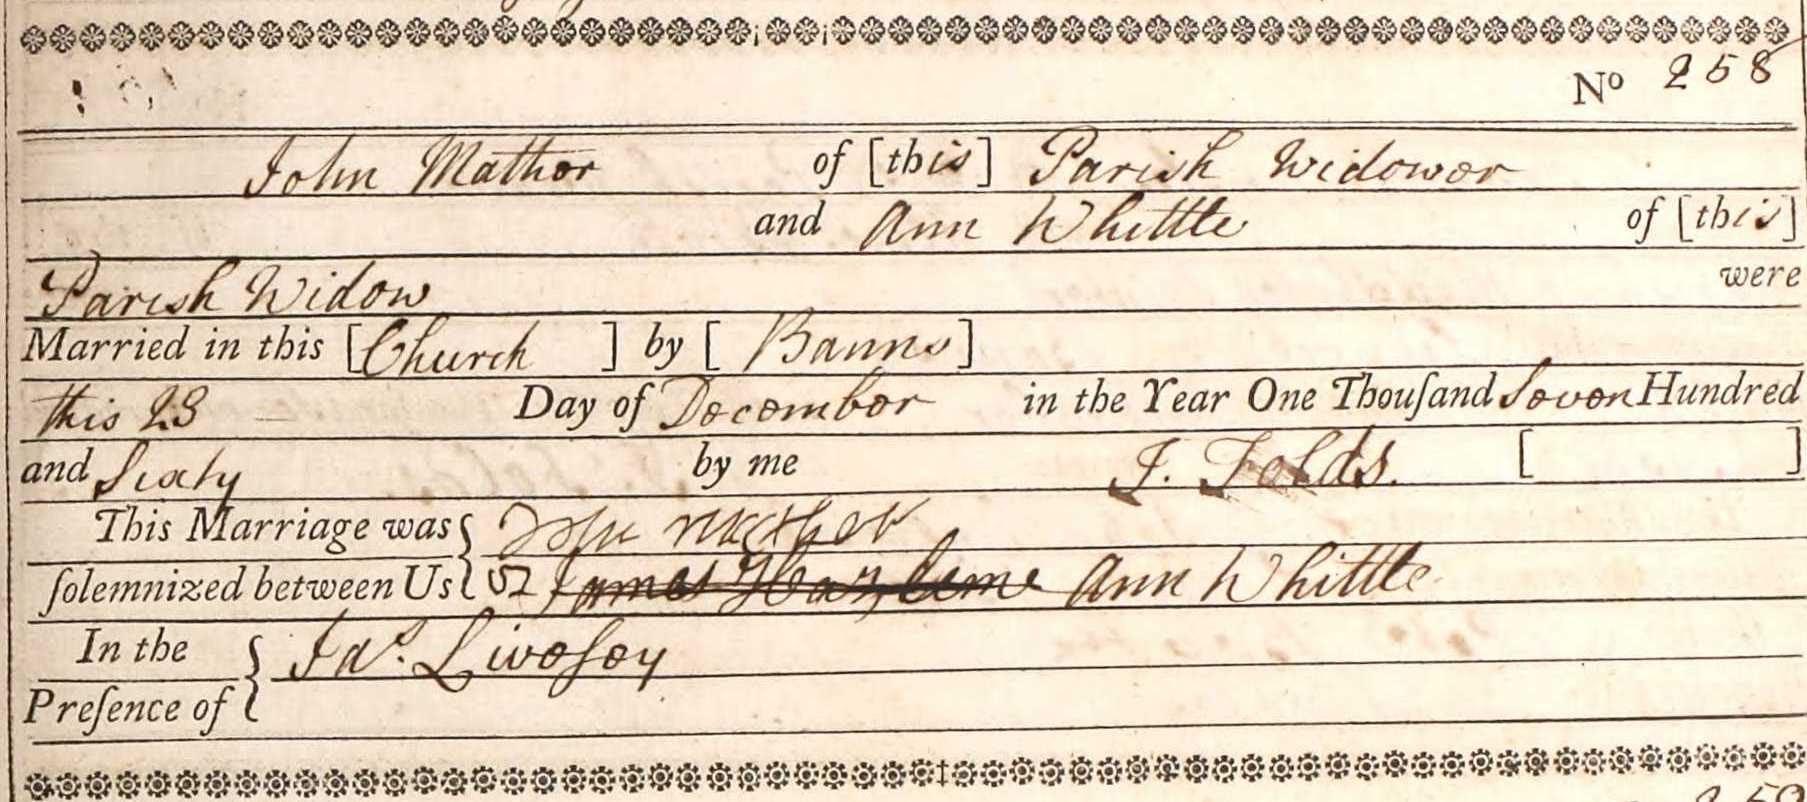 No 258
John Mather of [this] Parish Widower
and Ann Whittle of [this]
Parish Widow were
Married in this [Church] by [Banns]
this 23 Day of December in the Year One Thouſand Seven Hundred
and Sixty by me J. Folds. [ ]
This Marriage was { John Mather
ſolemnized between Us { James Ann Whittle
In the { Jas. Liveſey
Preſence of
259